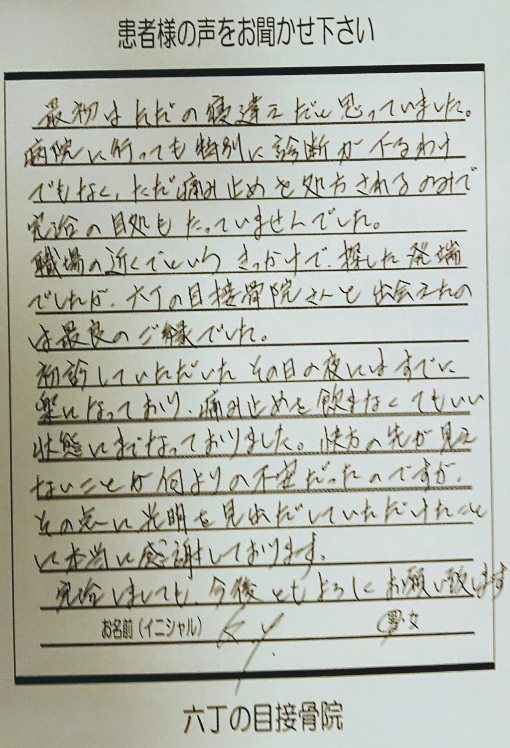 患者様の声をお聞かせ下さい
最初はただの寝違えだと思っていました。
病院に行っても特別に診断が下るわけ
でもなく、ただ痛み止めを処方されるのみで
完治の目処もたっていませんでした。
職場の近くでというきっかけで、探した発端
でしたが、六丁の目接骨院さんと出会えたの
は最良のご縁でした。
初診していただいたその日の夜にはすでに
楽になっており、痛み止めを飲まなくてもいい
状態にまでなっておりました。快方の先が見え
ないことが何よりの不安だったのですが、
その点に光明を見出だしていただけたこと
に本当に感謝しております。
完治しましても、今後ともよろしくお願い致します
お名前（イニシャル） K.Y. 男・女
六丁の目接骨院